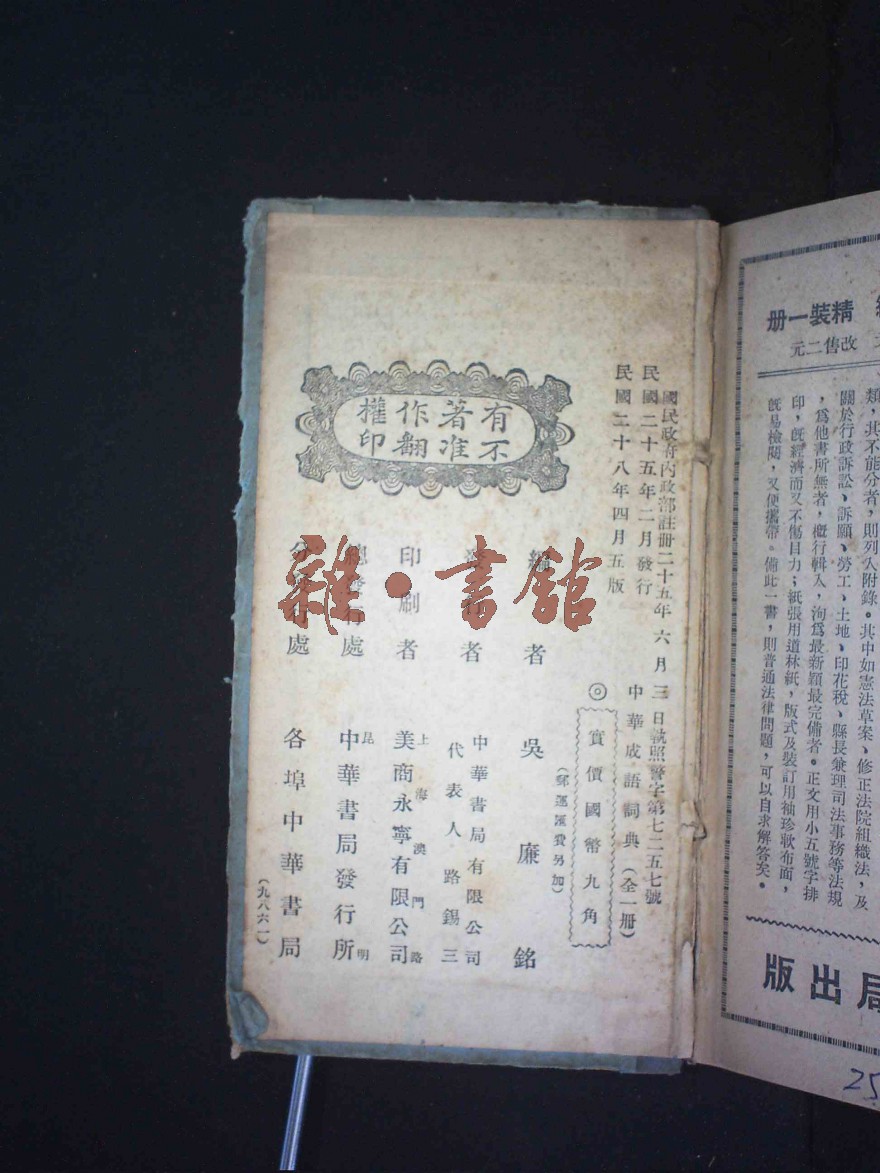 精裝一册
改售二元
類，其不能分者，則列入附錄。其中如憲法草案、修正法院組織法，及
關於行政訴訟、訴願、勞工、土地、印花稅、縣長兼理司法事務等法規
，爲他書所無者，概行輯入，洵爲最新穎最完備者。正文用小五號字排
印，旣經濟而又不傷目力；紙張用道林紙，版式及裝訂用袖珍軟布面，
旣易檢閱，又便攜帶。備此一書，則普通法律問題，可以自求解答矣。
局出版
25
國民政府內政部註册二十五年六月三日執照警字第七二五七號
民國二十五年二月發行
民國二十八年四月五版
中華成語詞典（全一册）
◎實價國幣九角
（郵運匯費另加）
有著作權
不准翻印
編者 吳廉銘
發行者 中華書局有限公司
代表人路錫三
印刷者 上海澳門路
美商永寧有限公司
總發行處 昆明
中華書局發行所
分發行處 各埠中華書局
（九八六一）
雜·書館